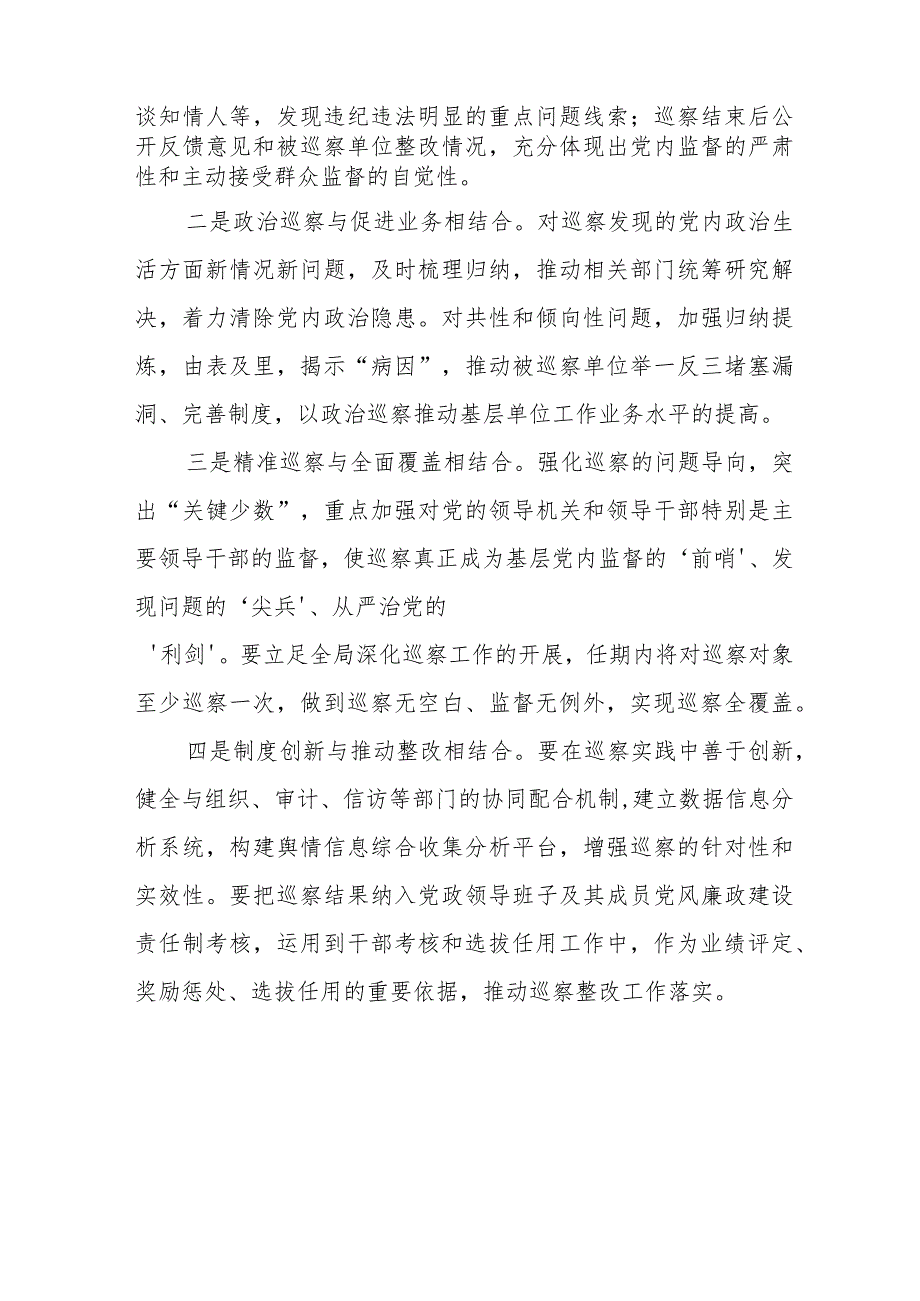 谈知情人等，发现违纪违法明显的重点问题线索；巡察结束后公
开反馈意见和被巡察单位整改情况，充分体现出党内监督的严肃
性和主动接受群众监督的自觉性。
二是政治巡察与促进业务相结合。对巡察发现的党内政治生
活方面新情况新问题，及时梳理归纳，推动相关部门统筹研究解
决，着力清除党内政治隐患。对共性和倾向性问题，加强归纳提
炼，由表及里，揭示“病因”，推动被巡察单位举一反三堵塞漏
洞、完善制度，以政治巡察推动基层单位工作业务水平的提高。
三是精准巡察与全面覆盖相结合。强化巡察的问题导向，突
出“关键少数”，重点加强对党的领导机关和领导干部特别是主
要领导干部的监督，使巡察真正成为基层党内监督的‘前哨'、发
现问题的‘尖兵'、从严治党的
'利剑'。要立足全局深化巡察工作的开展，任期内将对巡察对象
至少巡察一次，做到巡察无空白、监督无例外，实现巡察全覆盖。
四是制度创新与推动整改相结合。要在巡察实践中善于创新，
健全与组织、审计、信访等部门的协同配合机制,建立数据信息分
析系统，构建舆情信息综合收集分析平台，增强巡察的针对性和
实效性。要把巡察结果纳入党政领导班子及其成员党风廉政建设
责任制考核，运用到干部考核和选拔任用工作中，作为业绩评定、
奖励惩处、选拔任用的重要依据，推动巡察整改工作落实。